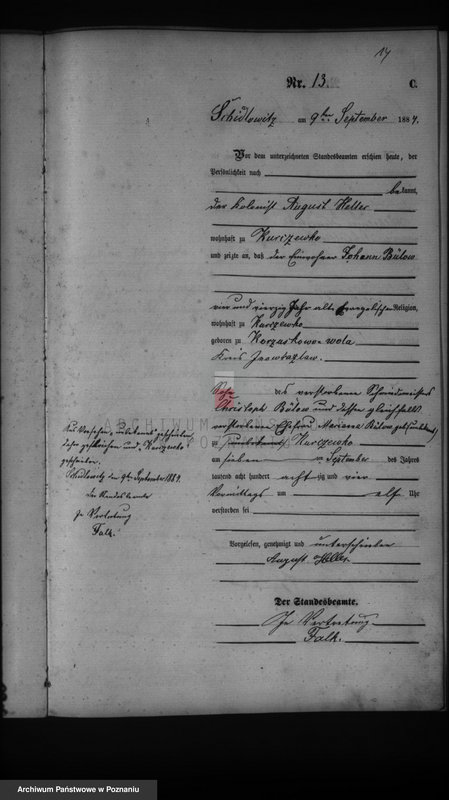 17
Nr. 13. C.
Schidlowitz am 9ten September 1884.
Vor dem unterzeichneten Standesbeamten erschien heute, der
Persönlichkeit nach
bekannt,
der Kolonist August Heller
wohnhaft zu Kurczewko
und zeigte an, daß der Einwohner Johann Bülow
vier und vierzig Jahr alt, evangelischer Religion,
wohnhaft zu Kurczewko
geboren zu
Kreis Inowrazlaw.
Sohn des verstorbenen
Christoph Bülow und dessen gleichfalls
verstorbenen Ehefrau Marianna Bülow geb.
zu Kurczewko
am sieben ten September des Jahres
tausend acht hundert acht zig und vier
Vormittags um elf Uhr
verstorben sei
Vorgelesen, genehmigt und unterschrieben
August Heller
Der Standesbeamte.
In Vertretung
Falk.
Aus Versehen "unbekannt" geschrieben,
daher gestrichen und "Kurczewko"
geschrieben.
Schidlowitz den 9ten September 1884.
Der Standesbeamte
In Vertretung
Falk.
ARCHIWUM PAŃSTWOWE
W POZNANIU
Archiwum Państwowe w Poznaniu